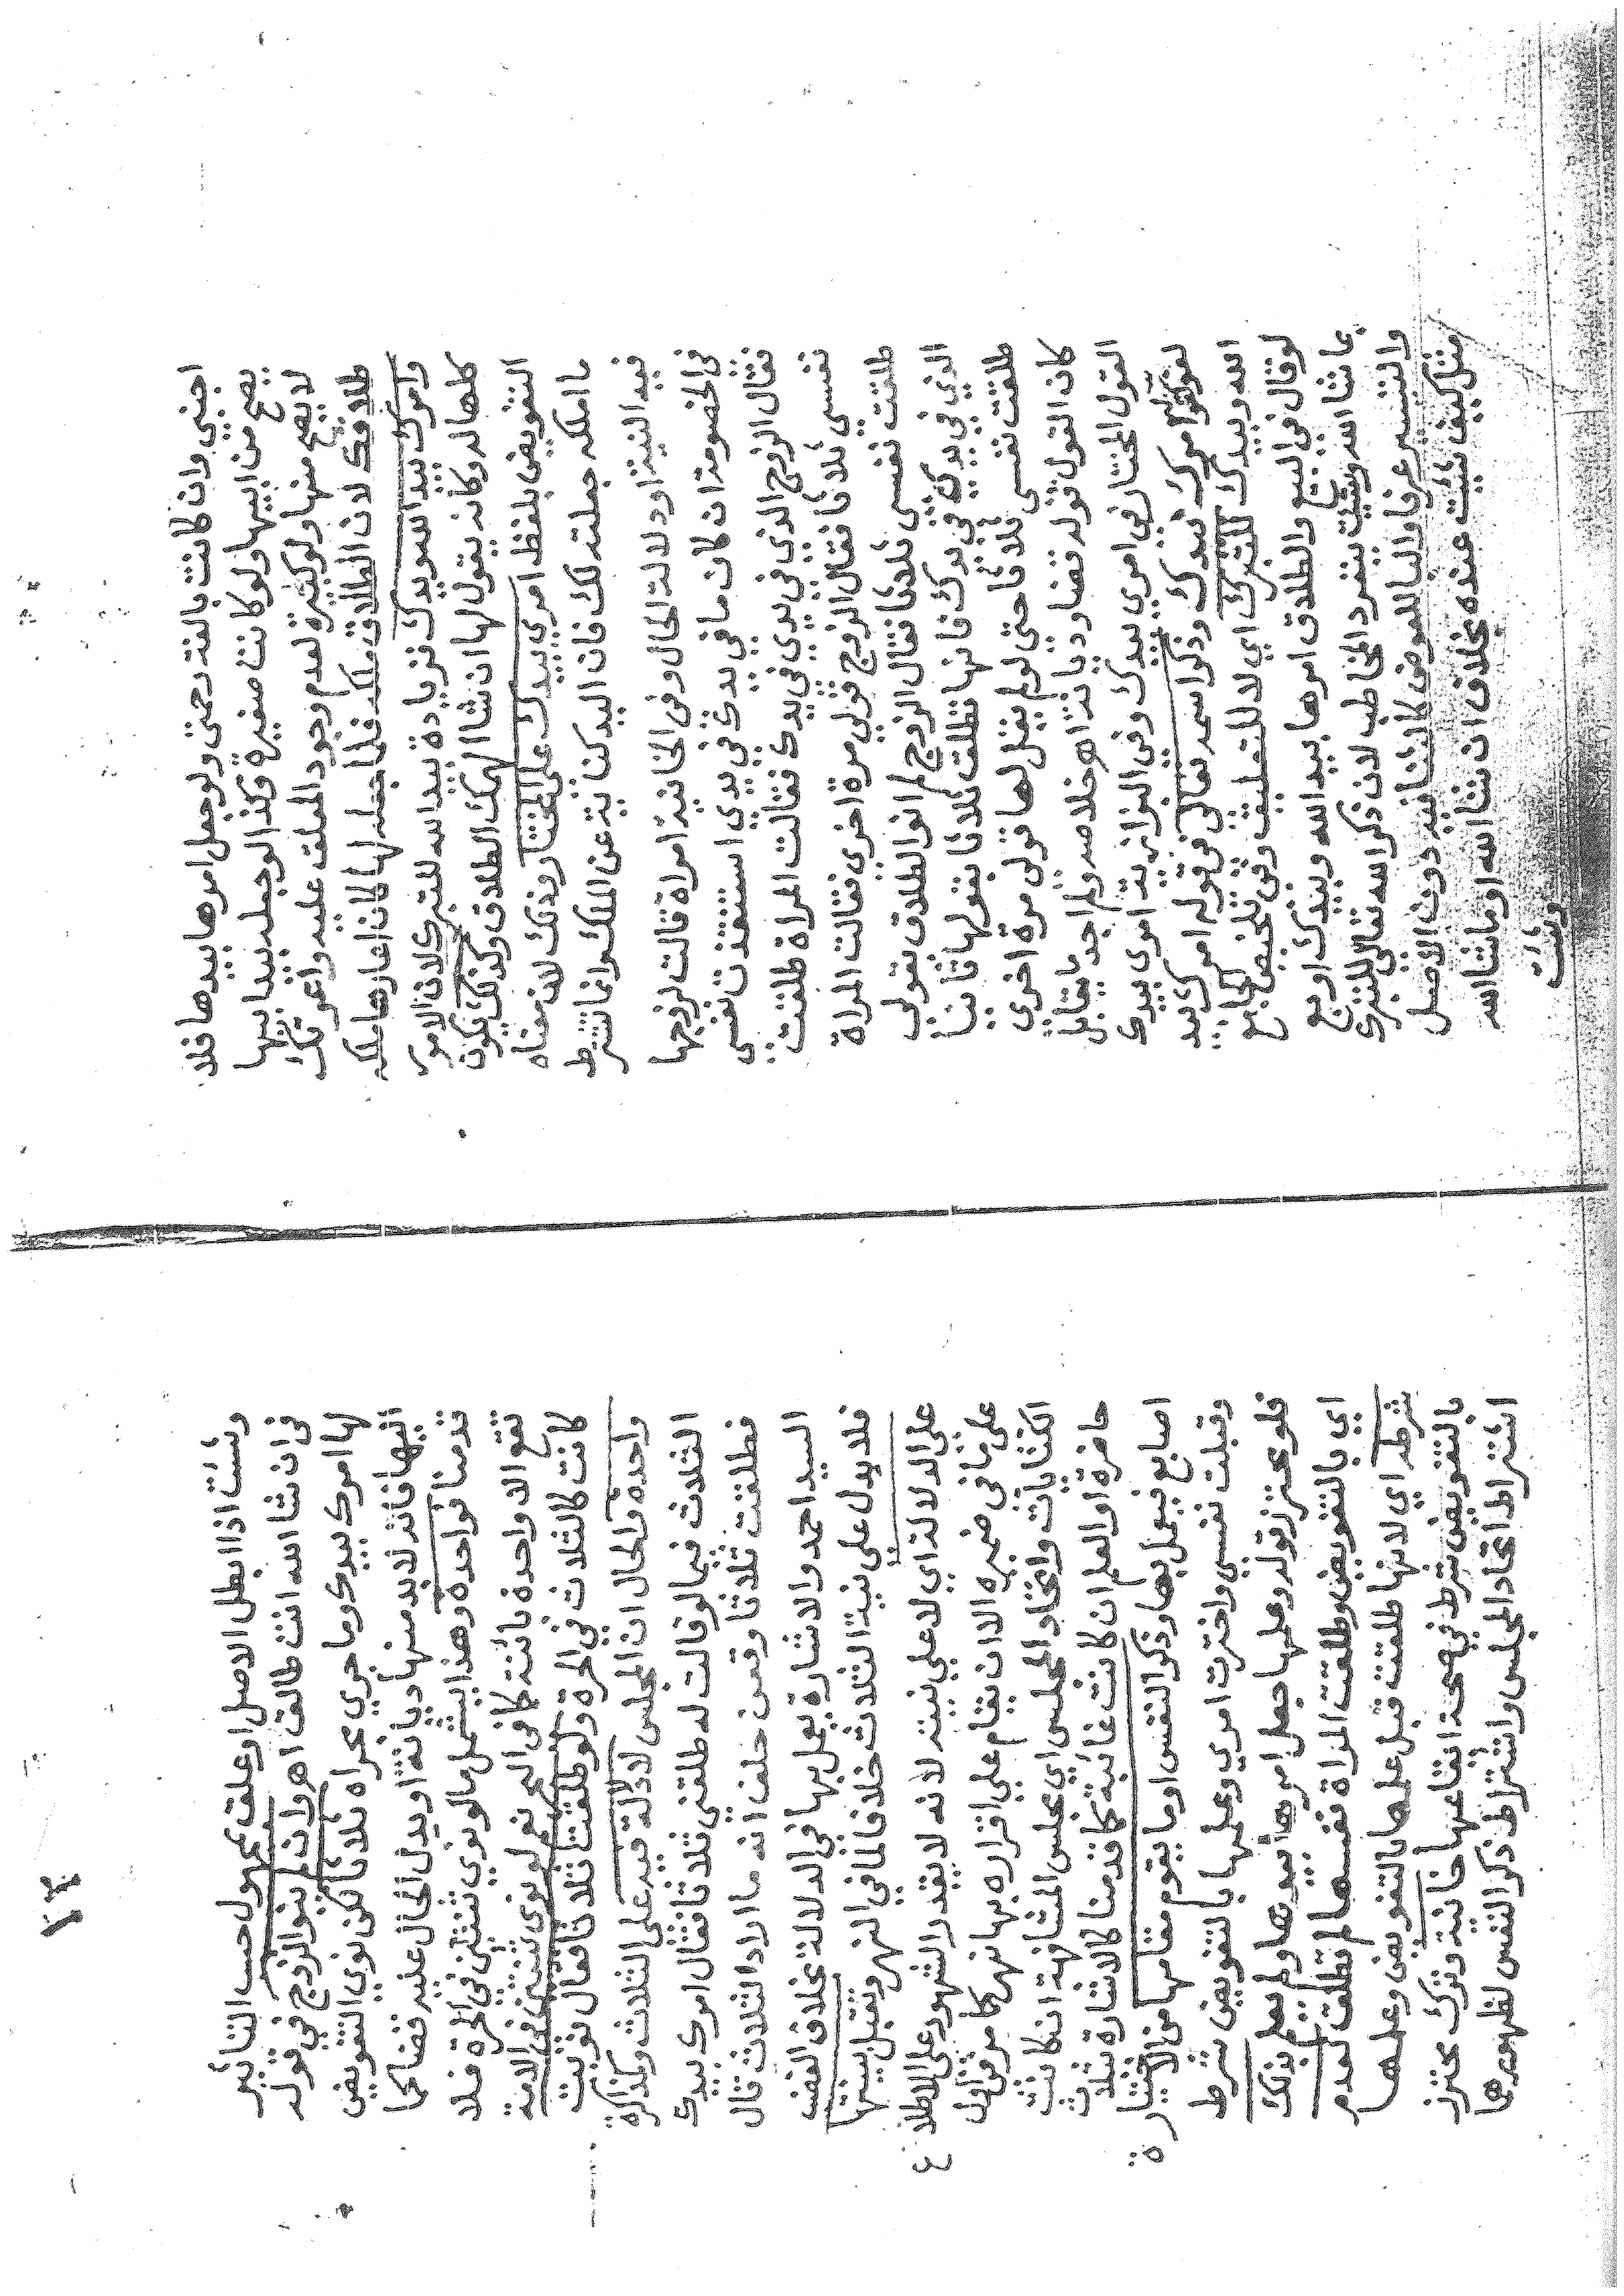 اجنبي وان كانت بالغة رحمتي ولو جعل امرها بيدها فلا
يصح من ابيها ولو كانت صغيرة وكذا لو جعله بيد ابيها
لا يصح منها ولو كبيرة لعدم وجود المعلق عليه واعرتك
طلاقك لان الطلاق ملكه فلما جعله لها كان اعارها ملكه
وامرك بيد الله ويدك فزيادة بيد الله للتبرك لان الامور
كلها له وكانه يقول لها ان شاء الهك الطلاق وكذلك يكون
التفويض بلفظ امري بيدك على المختار وذلك لان معناه
ما املكه جعلته لك فان اليد كناية عن الملك وانما تشترط
فيه النية او دلالة الحال وفي الخانية امراة قالت لزوجها
في الخصومة ان كان ما في يدك في يدي استنقذت نفسي
فقال الزوج الذي في يدي في يدك فقالت المراة طلقت
نفسي ثلاثا فقال الزوج قولي مرة اخرى فقالت المراة
طلقت نفسي ثلاثا فقال الزوج لم انو الطلاق بقولي
الذي في يدي في يدك فانها تطلق ثلاثا بقولها ثانيا
طلقت نفسي ثلاثا حتى لو لم يقل لها قولي مرة اخرى
كان القول قوله قضاء وديانة اه خلاصة ولم اجد ما يقابل
القول المختار في امري بيدك وفي البزازية امري بيدي
كقوله امرك بيدك وذكر اسمه تعالى في قوله امرك بيد
الله وبيدك للتبرك اي لا للتعليق وفي تلخيص الجامع
لو قال في البيع والطلاق امرها بيد الله وبيدك او بع
بما شاء الله وشئت ينفرد المخاطب لان ذكر الله تعالى للتبرك
والتيسير عرفا والباء للعوض كانشا فيه دون الاصل
مثل كيف شئت عنده بخلاف ان شاء الله او ما شاء الله
وشئت
١٣
وشئت اذا ابطل الاصل او علق بمجهول حسب التاثير
في ان شاء الله انت طالق اه وان لم ينو الزوج في قوله
لها امرك بيدك وما جرى مجراه ثلاثا لكن نوى التفويض
اليها فانه لا بد منها ديانة او يدل الحال عليه قضاء كما
قدمنا فواحدة وهذا يشمل ما لو نوى ثنتين في الحرة فلا
تقع الا واحدة بائنة كما في البحر نعم لو نوى ثنتين في الامة
كانت كالثلاث في الحرة ولو طلقت ثلاثا فقال نويت
واحدة والحال ان المجلس لا دلالة فيه على الثلاث وكذا كرة
الثلاث فيما لو قالت له طلقني ثلاثا فقال امرك بيدك
فطلقت ثلاثا وقس حلف انه ما اراد الثلاث قال
السيد احمد والاشارة يعمل بها في الدلالة بخلاف الغضب
فلا يدل على نية الثلاث خلافا لما في النهر وتقبل بينتها
على الدلالة اي لا على نيته لانه لا يقدر الشهود على الاطلاع
على ما في ضميره الا ان يقام على اقراره بها نهر كما مر في اول
الكنايات واتحاد المجلس اي مجلس المشافهة ان كانت
حاضرة او العلم ان كانت غائبة كما قدمنا كالاشارة بثلاث
اصابع فيعمل بها وذكر النفس او ما يقوم مقامها من الاختيارة
وقبلت نفسي واخترت امري وعلمها بالتفويض شرط
فلو محترز قوله وعلمها جعل امرها بيدها ولم تعلم بذلك
اي بالتفويض وطلقت المراة نفسها لم تطلق لعدم
شرطه اي لانها طلقت قبل علمها بالتفويض وعلمها
بالتفويض شرط في صحة ايقاعها خانية وترك محترز
اشتراط اتحاد المجلس واشتراط ذكر النفس لظهورها